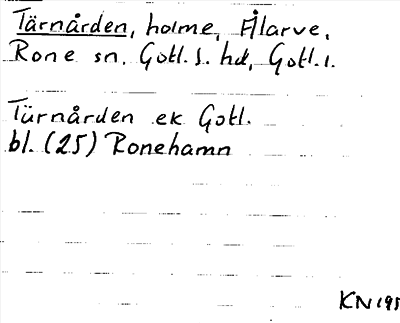 Tärnården, holme, Ålarve,
Rone sn, Gotl. s. hd, Gotl. l.
Türnården ek Gotl.
bl. (25) Ronehamn
KN 195